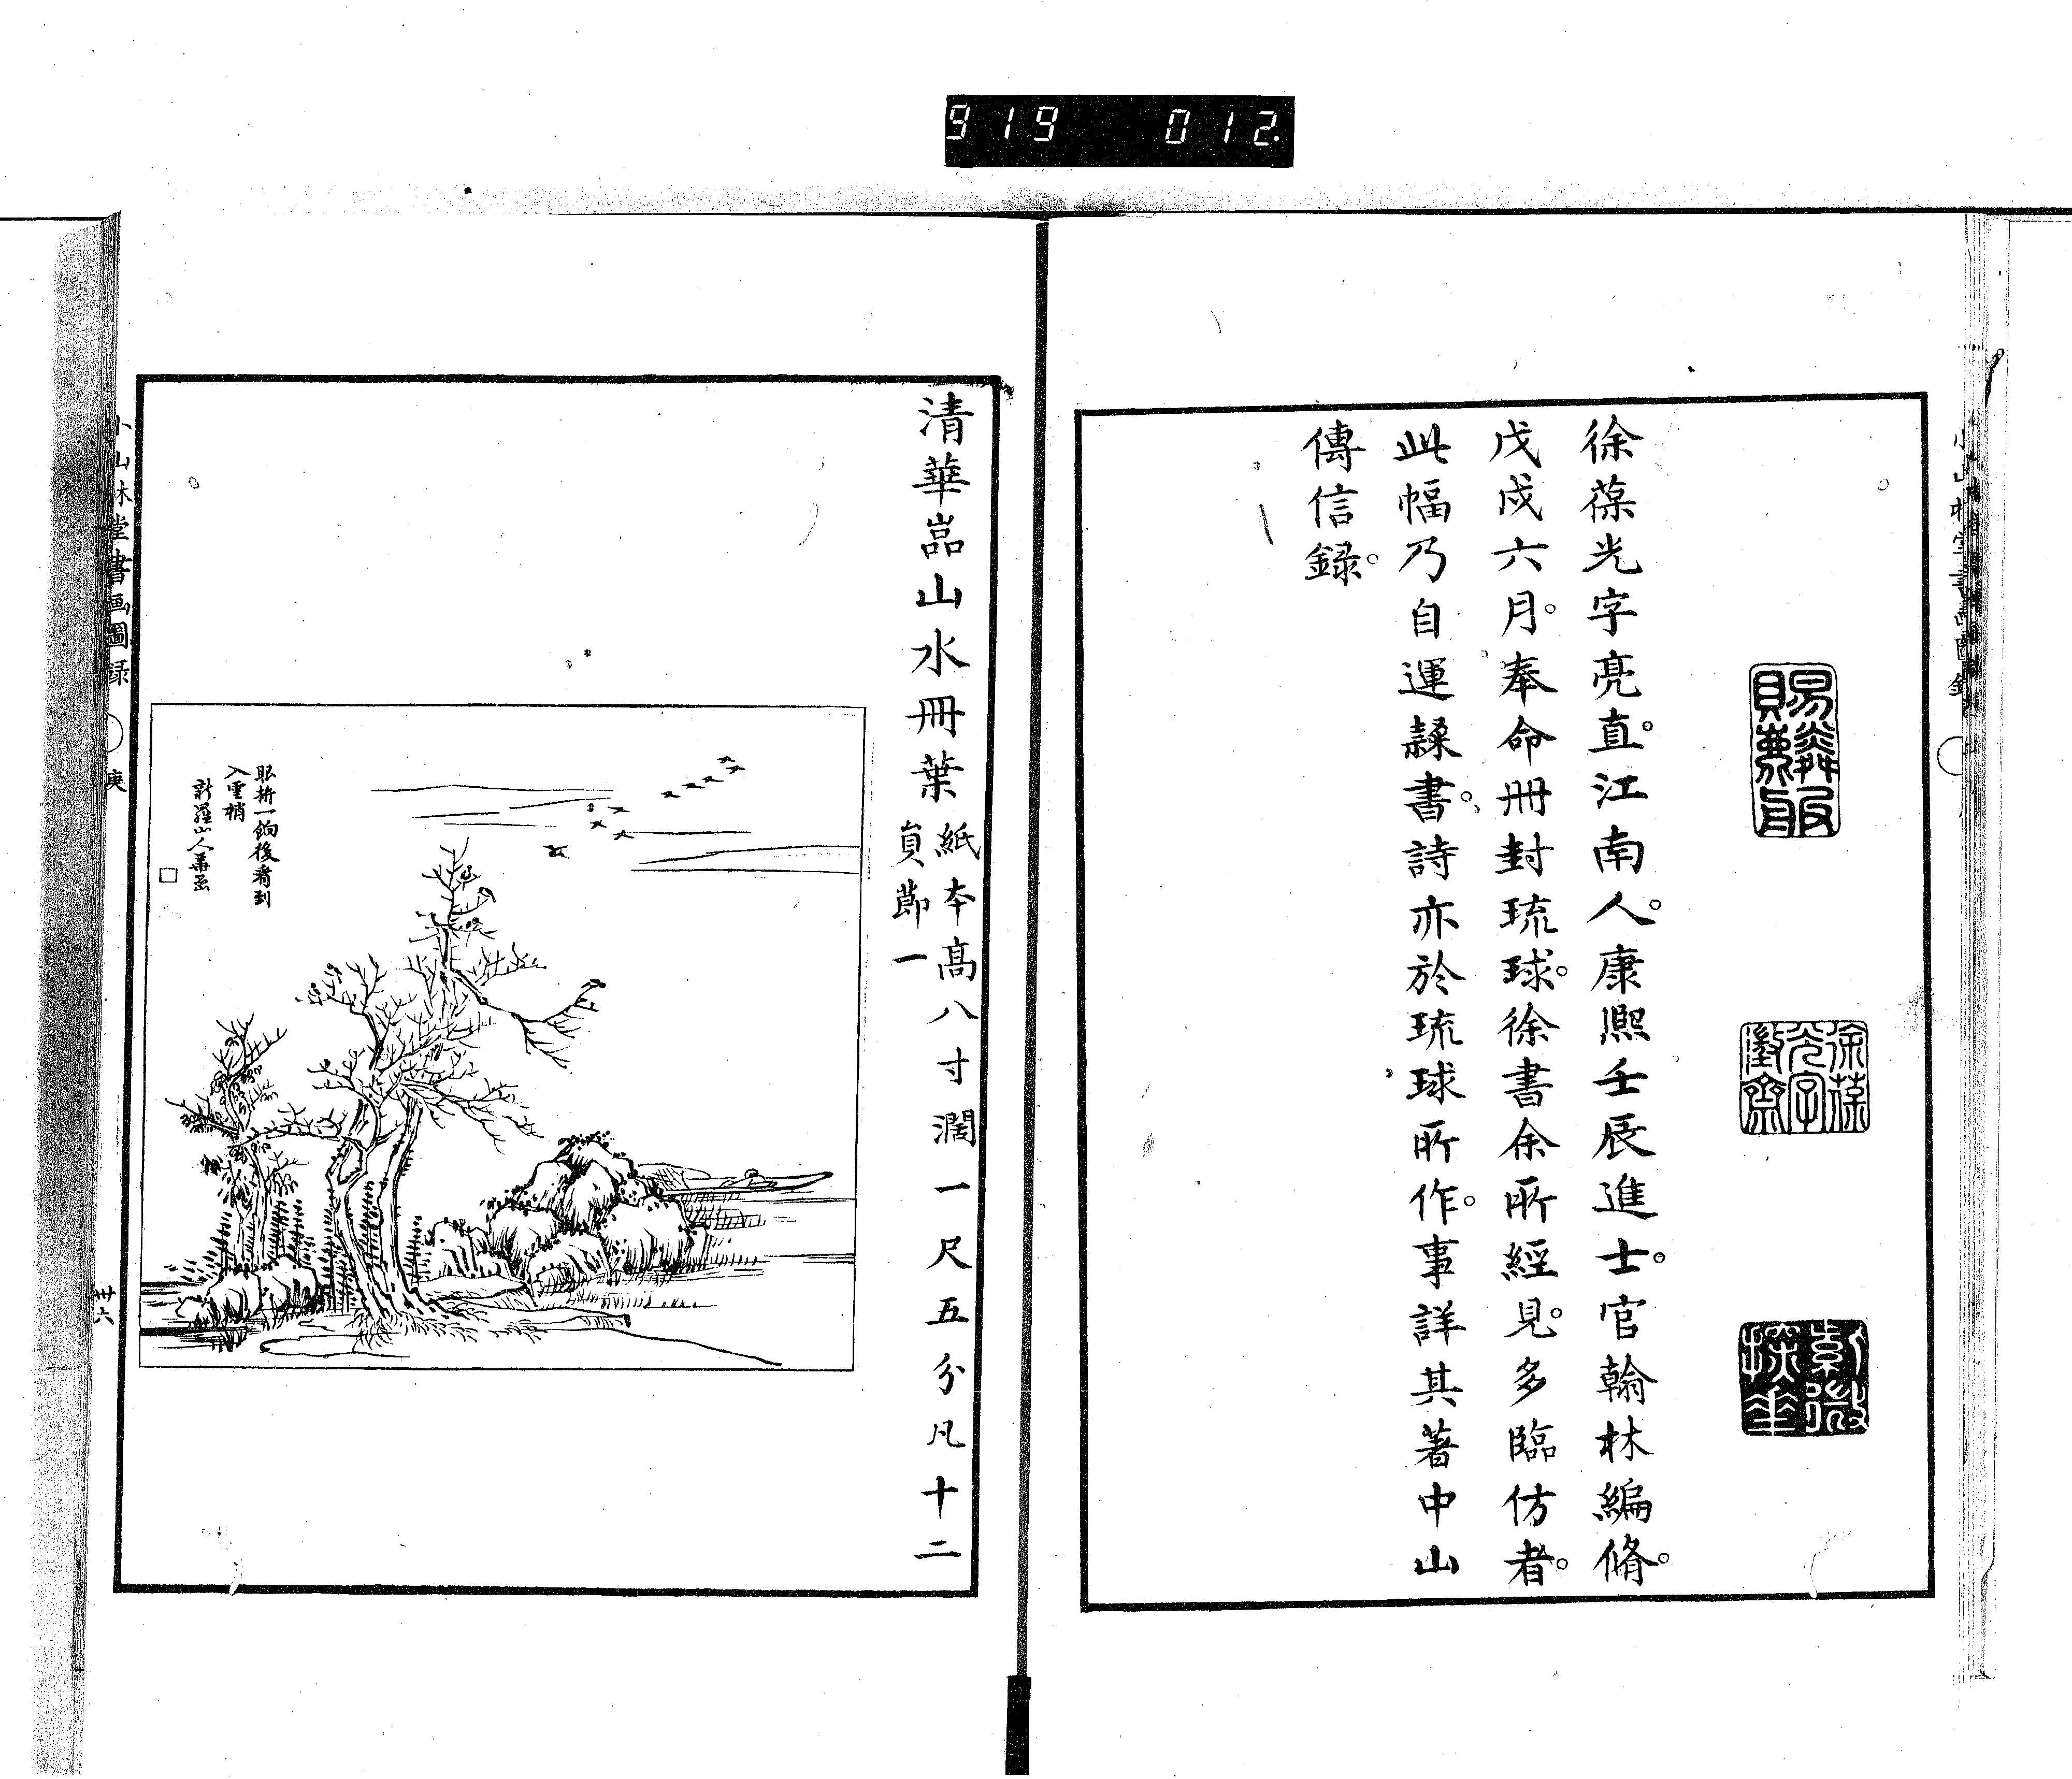 919 012
徐葆光字亮直。江南人。康熙壬辰進士。官翰林編脩。
戊戌六月。奉命冊封琉球。徐書余所經見。多臨仿者。
此幅乃自運隷書。詩亦於琉球所作。事詳其著中山
傳信録。
徐葆
光字
澂齋
紫微
探花
清華嵒山水冊葉
紙本高八寸濶一尺五分凡十二
頁節一
後看到
入雲梢
新羅山人華嵒
小山林堂書画圖録
庚
卅六